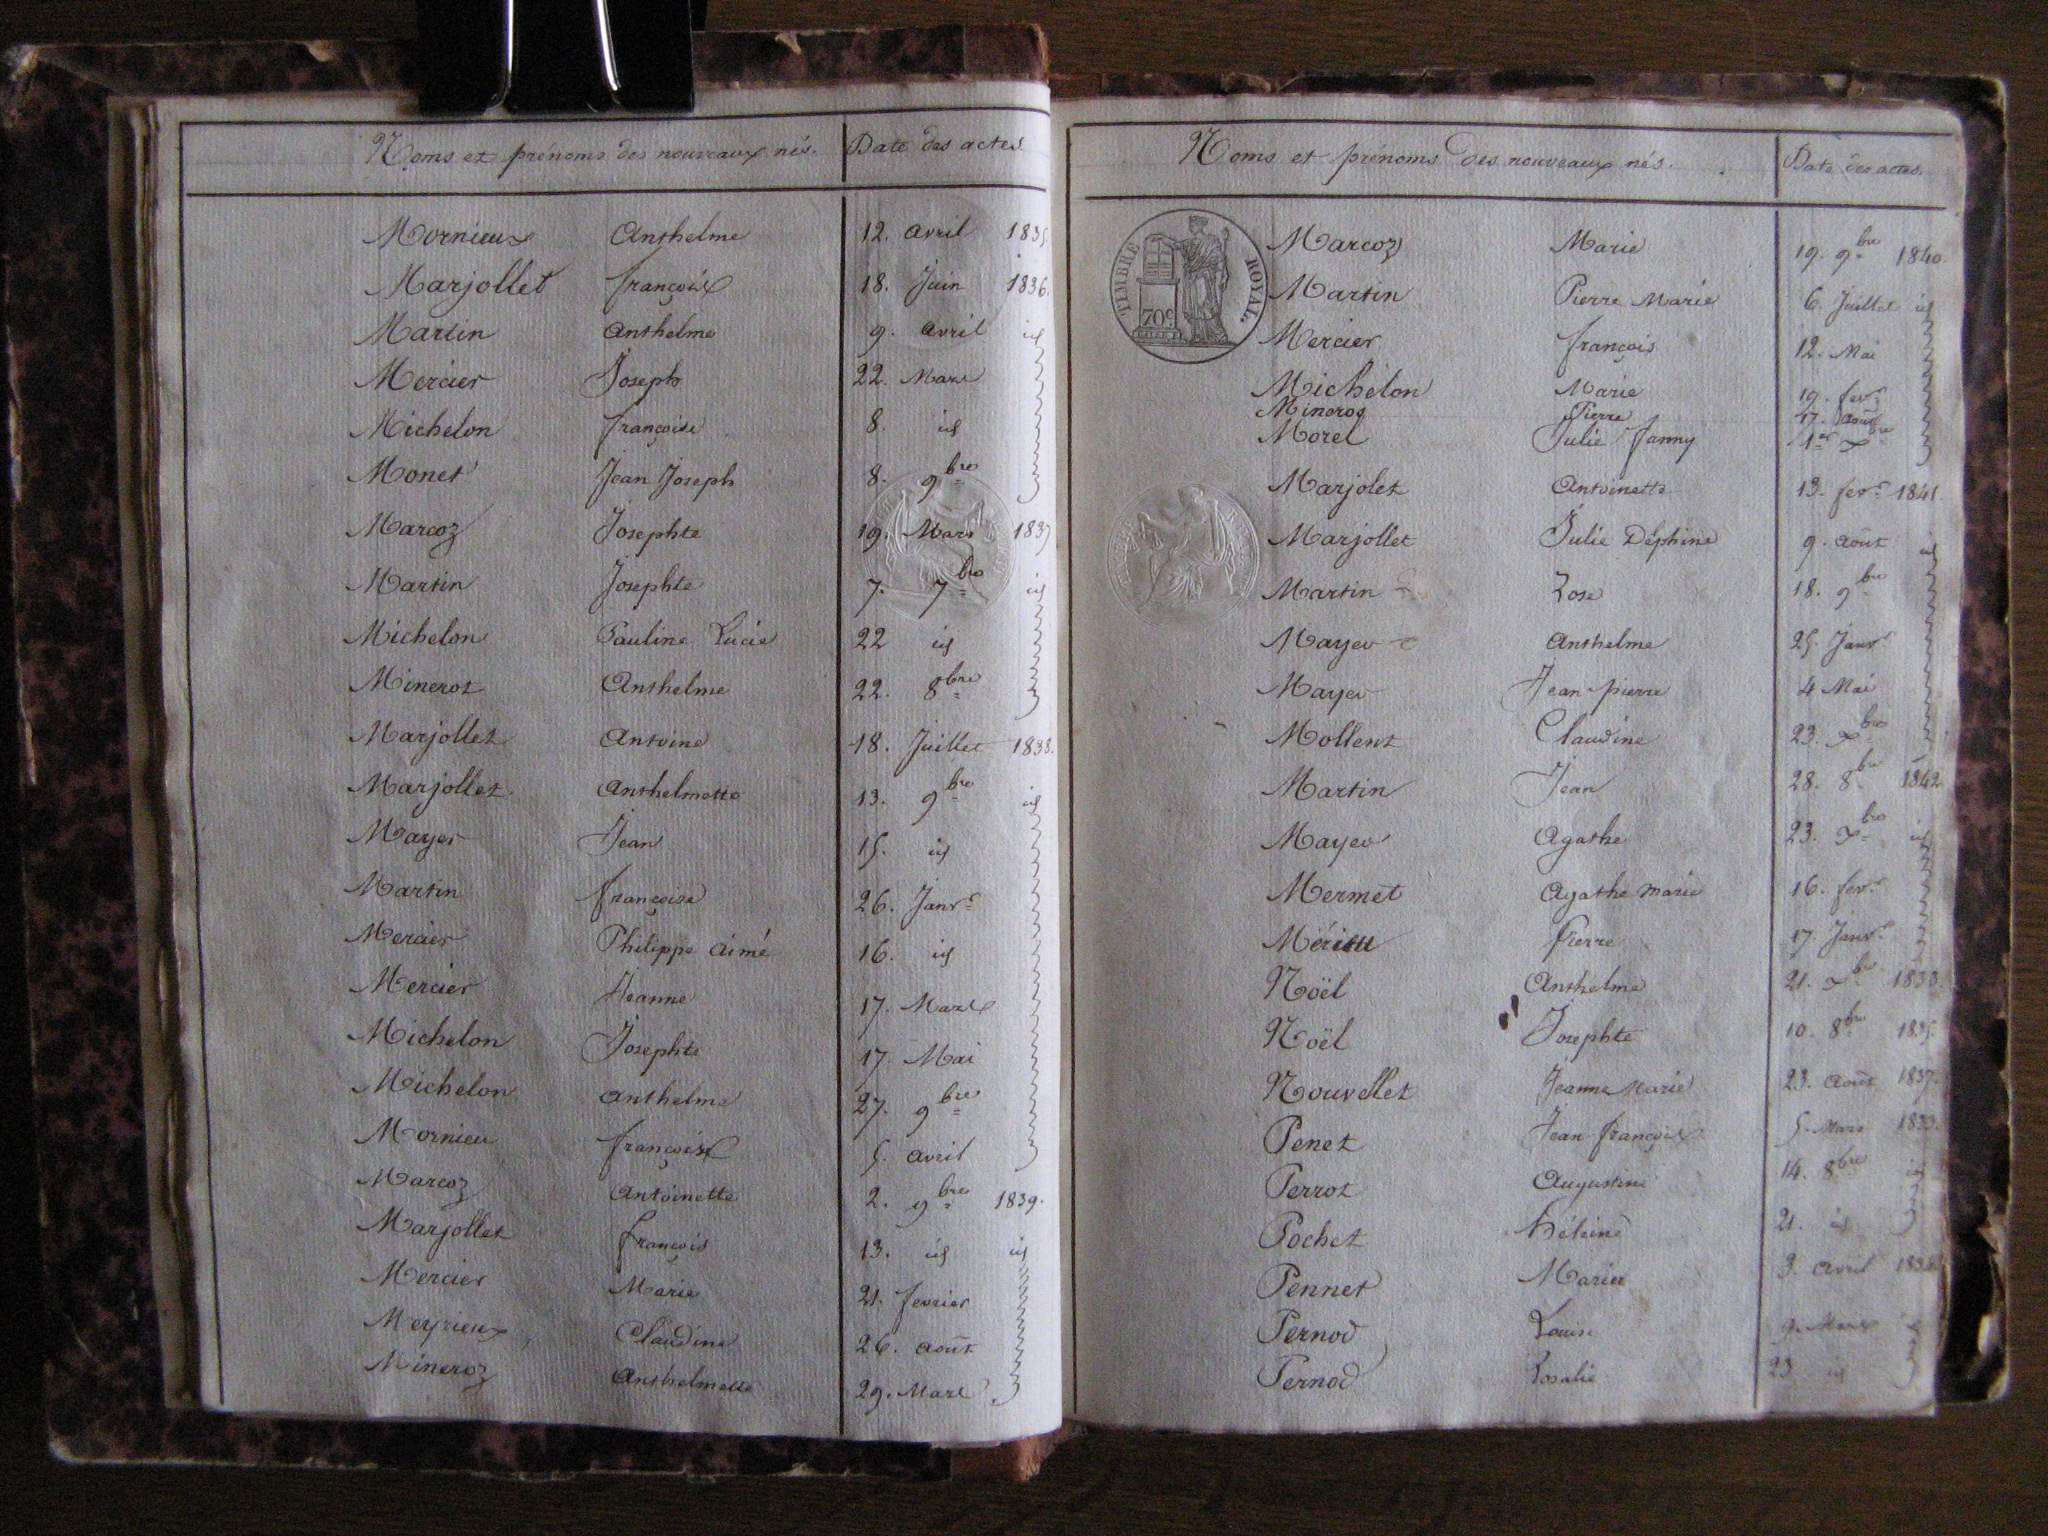 Noms et prénoms des nouveaux nés. Date des actes
Mornieux Anthelme 12. avril 1835.
Marjollet françois 18. Juin 1836.
Martin anthelme 9. avril id
Mercier Joseph 22. Mars
Michelon françoise 8. id
Monet Jean Joseph 8. 9bre
Marcoz Josephte 19. Mars 1837
Martin Josephte 7. 7bre id
Michelon Pauline Lucie 22 id
Minerot Anthelme 22. 8bre
Marjollet Antoine 18. Juillet 1838.
Marjollet Anthelmette 13. 9bre id
Mayer Jean 15. id
Martin françoise 26. Janvr
Mercier Philippe aimé 16. id
Mercier Jeanne 17. Mars
Michelon Josephte 17. Mai
Michelon anthelme 27. 9bre
Mornieu françois 5. avril
Marcoz Antoinette 2. 9bre 1839.
Marjollet françois 13. id id
Mercier Marie 21. fevrier
Meyrieux Claudine 26. août
Mineroz Anthelmette 29. Mars
Noms et prénoms des nouveaux nés. Date des actes.
TIMBRE ROYAL.
70c
Marcoz Marie 19. 9bre 1840.
Martin Pierre Marie 6. Juillet id
Mercier françois 12. Mai
Michelon Marie 19. fevr
Mineroz Pierre 17. août
Morel Julie Fanny 1er Xbre
Marjolet Antoinette 13. fevr 1841.
Marjollet Julie Déphine 9. août id
Martin Rose 18. 9bre
Mayer Anthelme 25. Janvr
Mayer Jean pierre 4 Mai
Mollent Claudine 23. Xbre
Martin Jean 28. 8bre 1842
Mayer Agathe 23. Xbre id
Mermet Agathe marie 16. fevr
Pierre 17. Janvr
Noël Anthelme 21. Xbre 1833.
Noël Josephte 10. 8bre 1835.
Nouvellet Jeanne Marie 23. août 1837.
Penet Jean françois 5. Mars 1833.
Perrot Augustine 14. 8bre id
Pochet héleine 21. id
Pennet Marie 3. avril
Pernod Louise 9. Mars id
Pernod Rosalie 23 id